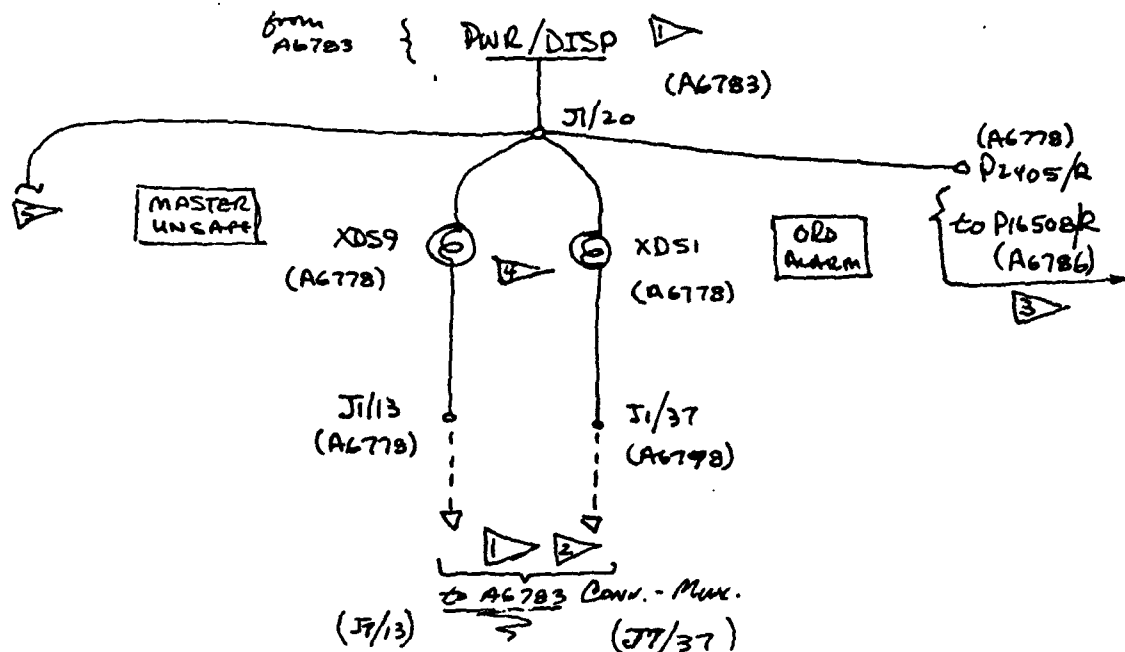 from
A6783 { PWR/DISP 1
(A6783)
J1/20
(A6778)
P2405/R
5
MASTER
UNSAFE
XDS9
(A6778)
4
XDS1
(A6778)
ORD
ALARM
to P16508/R
(A6786)
3
J1/13
(A6778)
J1/37
(A6798)
1 2
to A6783 Conn. - Mux.
(J7/13)
(J7/37)